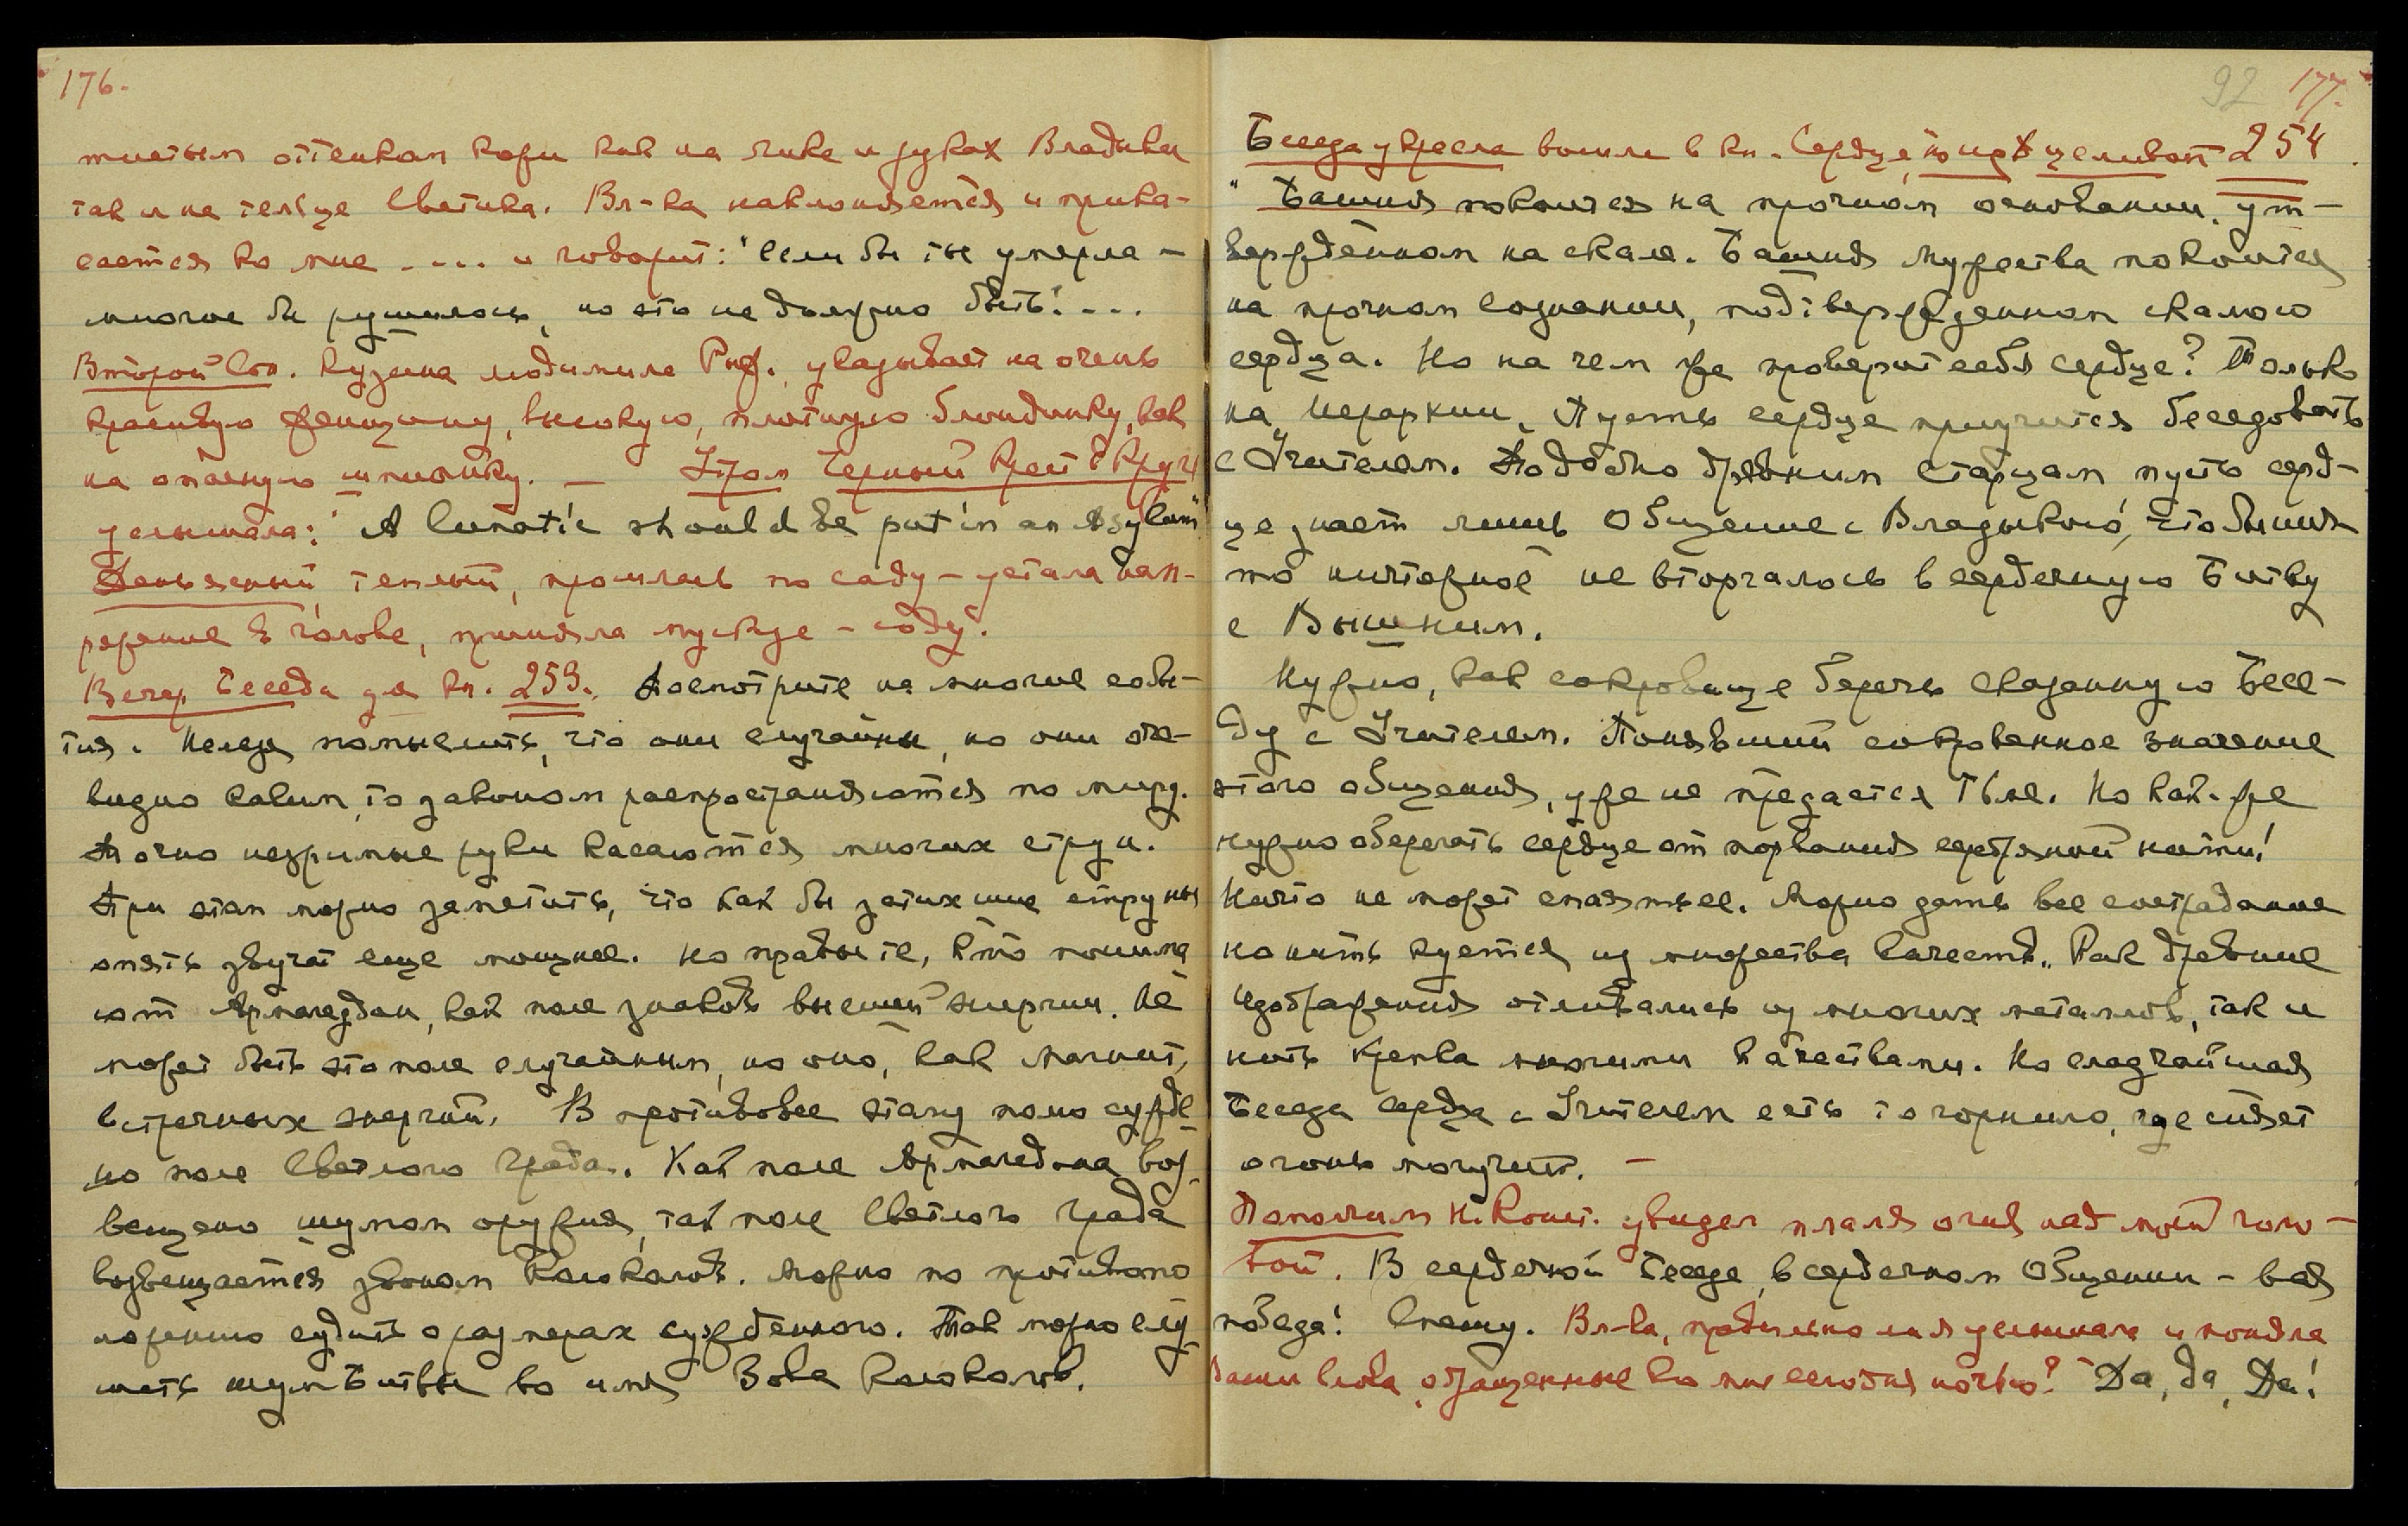 176.
тистым оттенком кожи как на лике и руках Владыки
так и на тельце Светика. Вл-ка наклоняется и прика-
сается ко мне .... и говорит: "Если бы ты умерла -
многое бы рушилось, но это не должно быть! ...
Второй Сон. Кузина людимила Риж., указывает на очень
красивую женщину, высокую, плотную блондинку, как
на опасную шпионку. — Утром Черный Крест в Кругу
услышала: "A lunatic should be put in an Asylum"
День ясный, теплый, прошлась по саду - устала нап-
ряжение в голове, приняла мускус - соду.
Вечер. Беседа для кн. 253. Посмотрите на многие собы-
тия. Нельзя помыслить, что они случайны, но они оче-
видно каким то законом распространяются по миру.
Точно незримые руки касаются многих струн.
При этом можно заметить, что как бы затихшие струны
опять звучат еще мощнее. Но правы те, кто понима
ют Армагеддон, как поле знаков высшей энергии. Не
может быть это поле случайным, но оно, как магнит,
встречных энергий. В противовес этому полю сужде-
но поле Светлого Града. Как поле Армагеддона воз-
вещено шумом оружия, так поле Светлого Града
возвещается звоном Колоколов. Можно по противопо
ложению судить о размерах сужденного. Так можно слу
шать шум Битвы во имя Зова Колоколов.
92 177.
Беседа у Кресла вошли в кн. Сердце, 254.
"Башня покоится на прочном основании, ут-
вержденном на скале. Башня Мужества покоится
на прочном сознании, подтвержденном скалою
сердца. Но на чем же проверит себя сердце? Только
на Иерархии. Пусть сердце приучится беседовать
с Учителем. Подобно древним старцам пусть серд-
це знает лишь Общение с Владыкою, чтобы нич
то ничтожное не вторгалось в сердечную Битву
с Вышним.
Нужно, как сокровище беречь сказанную Бесе-
ду с Учителем. Понявший сокровенное значение
этого общения, уже не предается тьме. Но как-же
нужно оберегать сердце от порвания серебряной нити!
Ничто не может спаять ее. Можно дать все сострадание
но нить куется из множества качеств. Как древние
Изображения отливались из многих металлов, так и
нить крепка многими качествами. Но сладчайшая
Беседа Сердца с Учителем есть то горнило, где сияет
огонь могущий. —
Пополам Н.Конст. увидел пламя огня над моей голо-
вой. В сердечной Беседе, в сердечном Общении - вся
победа! Спешу. Вл-ка, правильно ли я услышала и поняла
Ваши слова, обращенные ко мне сегодня ночью? "Да, да, Да!